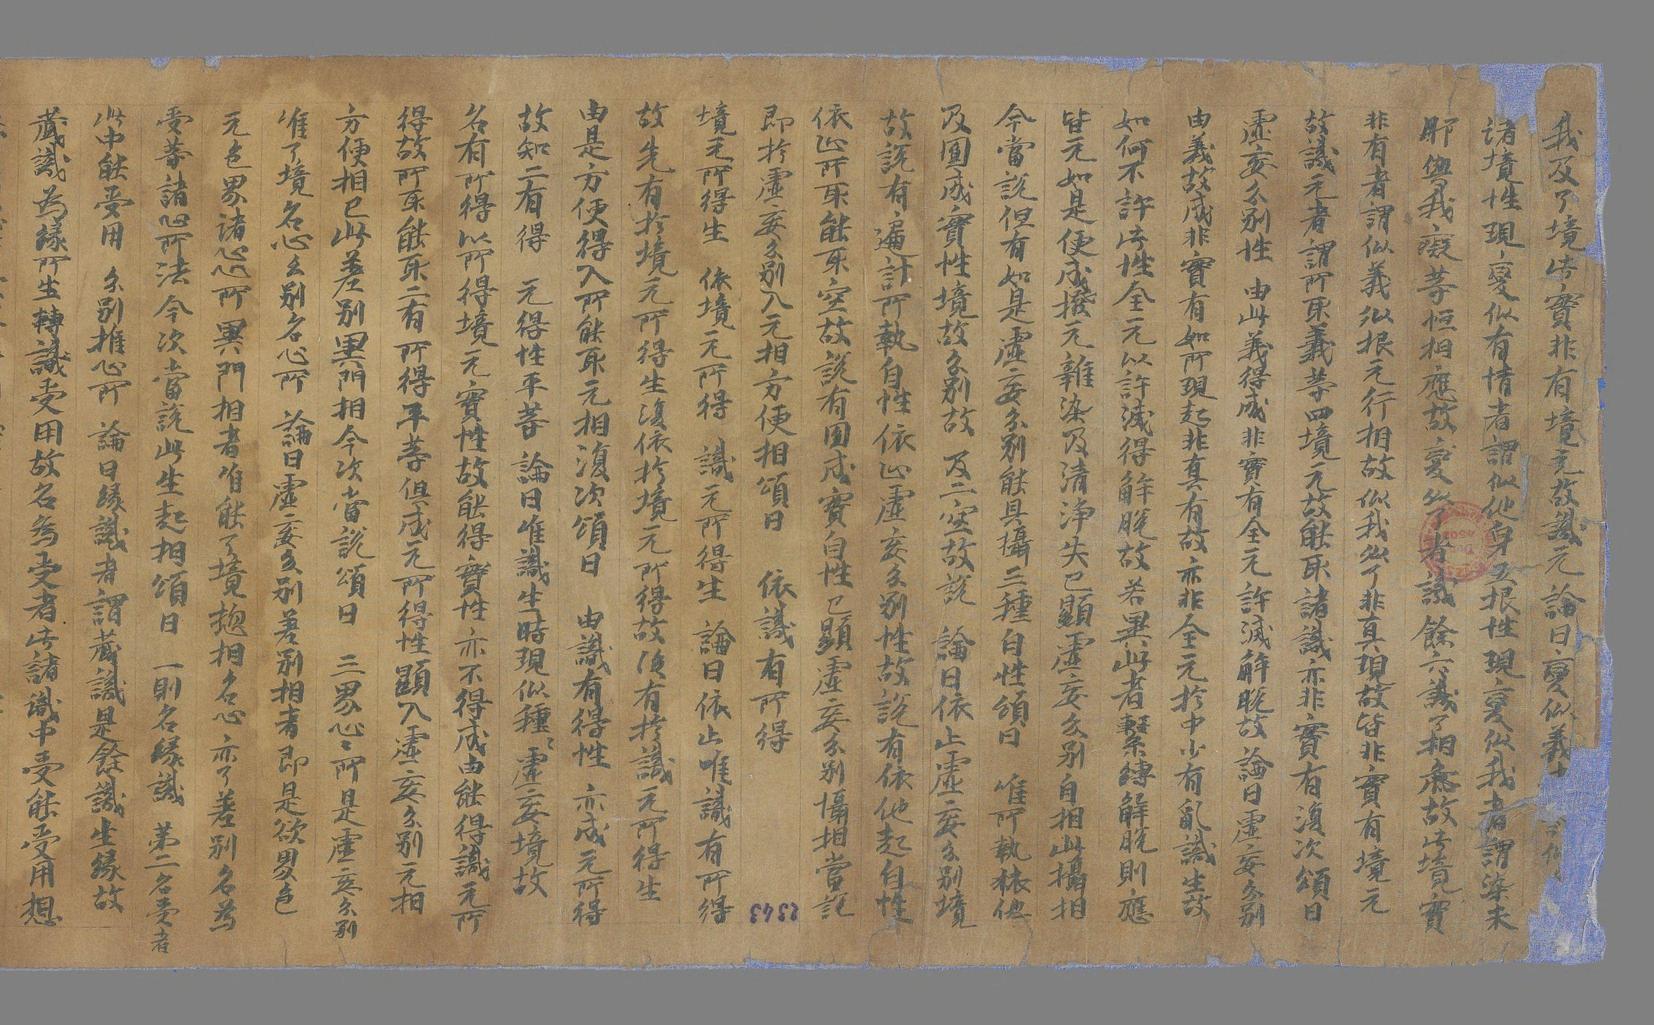 我及了境此實非有境无故識无 論曰變似義
諸境性現變似有情者謂似他身五根性現變似我者謂染末
那與我癡等恒相應故變似了者 識餘六識了相麁故此境實
非有者謂似義似根无行相故似我似了非真現故皆非實有境无
故識无者謂所取義等四境无故能取諸識亦非實有復次頌曰
虛妄分別性 由此義得成非實有全无許滅解脫故 論曰虛妄分別
由義故成非實有如所現起非真有故亦非全无於中少有亂識生故
如何不許此性全无以許滅得解脫故若異此者繫縛解脫則應
皆无如是便成撥无雜染及清淨失已顯虛妄分別自相此攝相
今當說但有如是虛妄分別能具攝三種自性頌曰 唯所執依他
及圓成實性境故分別故 及二空故說 論曰依止虛妄分別境
故說有遍計所執自性依止虛妄分別性故說有依他起自性
依止所取能取空故說有圓成實自性已顯虛妄分別攝相當說
即於虛妄分別入无相方便相頌曰 依識有所得
境无所得生 依境无所得 識无所得生 論曰依止唯識有所得
故先有於境无所得生復依於境无所得故後有於識无所得生
由是方便得入所能取无相復次頌曰 由識有得性 亦成无所得
故知二有得 无得性平等 論曰唯識生時現似種〻虛妄境故
名有所得以所得境无實性故能得實性亦不得成由能得識无所
得故所取能取二有所得平等俱成无所得性顯入虛妄分別无相
方便相已此差別異門相今次當說頌曰 三界心〻所是虛妄分別
唯了境名心么別名心所 論曰虛妄分別差別相者即是欲界色
无色界諸心心所異門相者唯能了境揔相名心亦了差別名為
受等諸心所法今次當說此生起相頌曰 一則名緣識 第二名受者
此中能受用 分別推心所 論曰緣識者謂藏識是餘識生緣故
藏識為緣所生轉識受用故名為受者此諸識中受能受用想
2343